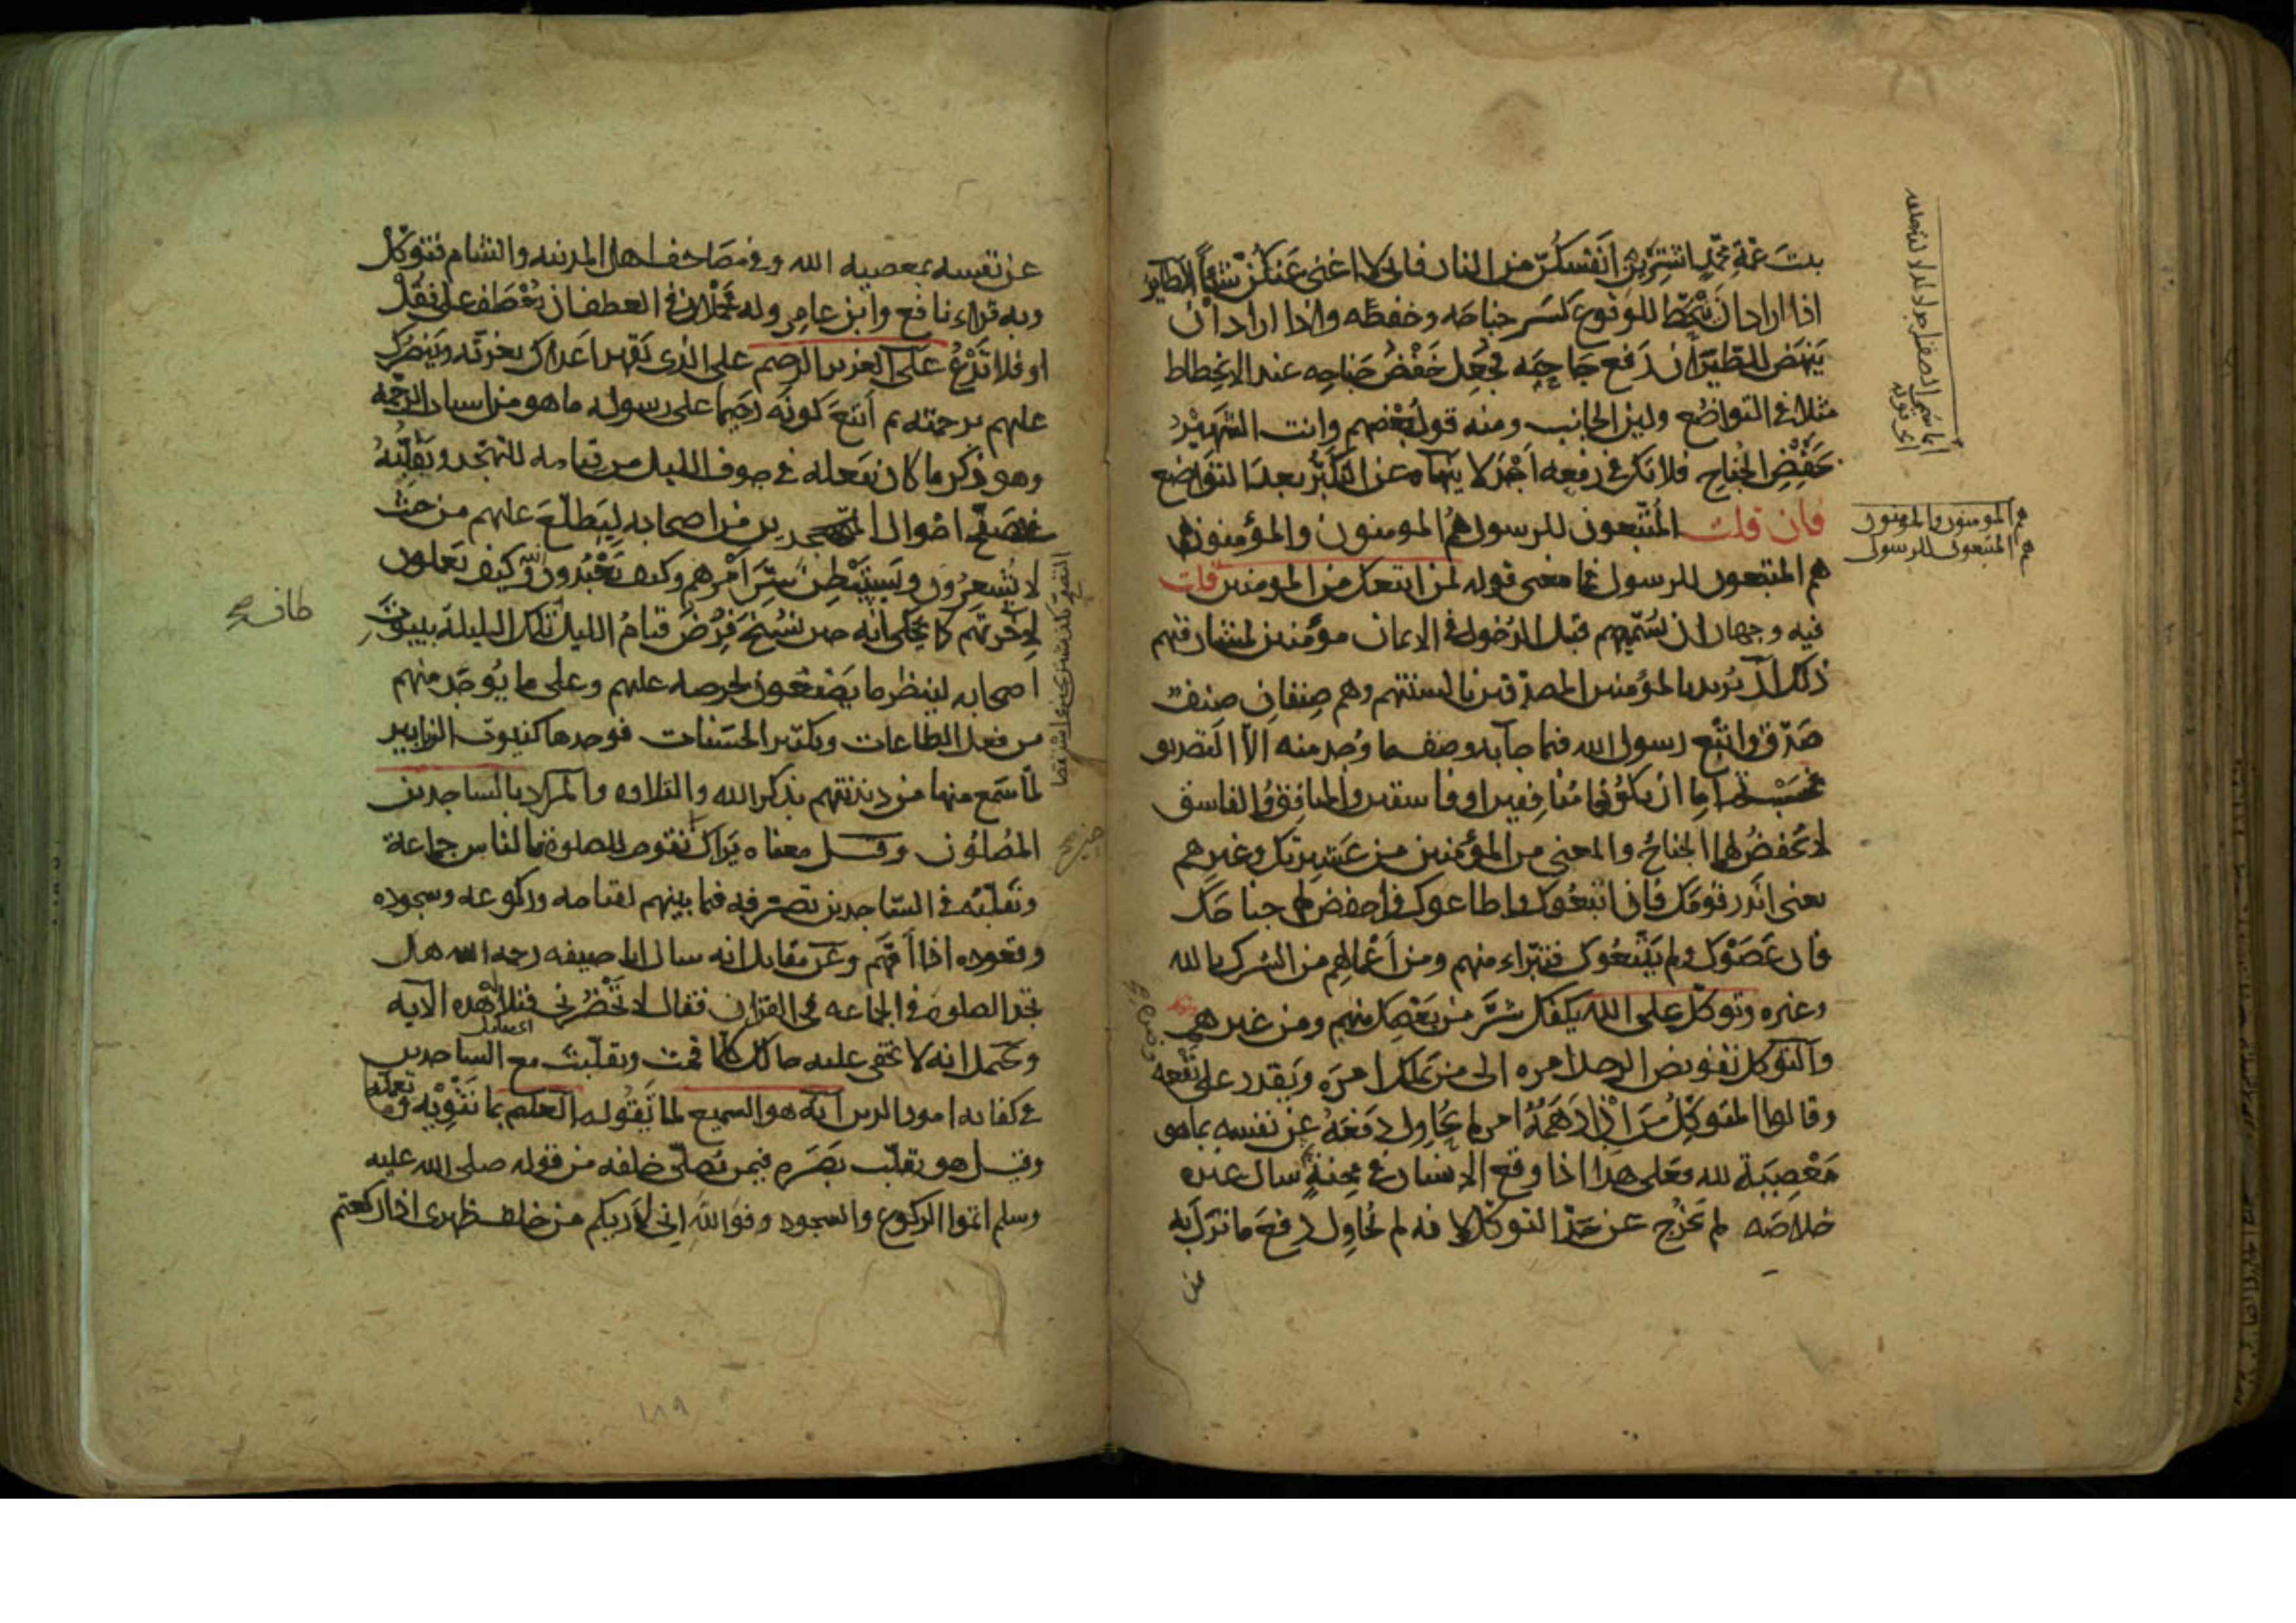 بنت عمة محمد اشترين أنفسكن من النار فاني لا اغنى عنكن شيئا الطاير
اذا اراد ان ينحط للوقوع كسر جناحه وخفضه واذا اراد ان
ينهض للطيران رفع جناحه فجعل خفض جناحه عند الانحطاط
مثلا في التواضع ولين الجانب ومنه قول بعضهم وانت الشهير
بخفض الجناح فلا تك في رفعه أجدلا ينهاه عن التكبر بعد التواضع
فان قلت المتبعون للرسول هم المومنون والمؤمنون
هم المتبعون للرسول فما معنى قوله لمن اتبعك من المومنين قلت
فيه وجهان ان يسميهم قبل الدخول في الايمان مؤمنين لمشارفتهم
ذلك أن يريد بالمؤمنين المصدقين بالسنتهم وهم صنفان صنف
صدق واتبع رسول الله فيما جآ به وصنف ما وجد منه الا التصديق
فحسب ثم اما ان يكونوا منافقين او فاسقين والمنافق والفاسق
لا يخفض لهما الجناح والمعنى من المؤمنين من عشيرتك وغيرهم
يعنى انذر قومك فان اتبعوك واطاعوك فاخفض لهم جناحك
فان عصوك ولم يتبعوك فتبراء منهم ومن أعمالهم من الشرك بالله
وغيره وتوكل على الله يكفك شر من يعصيك منهم ومن غيرهم
والتوكل تفويض الرجل امره الى من يملك امره ويقدر على نفعه
وقالوا المتوكل من ان دهمه امر لم يحاول دفعه عن نفسه بما هو
معصية لله فعلى هذا اذا وقع الانسان في محنة سال غيره
خلاصه لم يخرج عن حد التوكل لانه لم يحاول دفع ما نزل به
عن
هم المومنون والمومنون
هم المتبعون للرسول
عن نفسه بمعصيه الله وفي مصاحف اهل المدينه والشام فتوكل
وبه قراء نافع وابن عامر وله محملان في العطف ان يعطف على فقل
او فلا تدع على العزيز الرحيم على الذي يقهر اعداك بعزته وينصرك
عليهم برحمته ثم اتبع كونه رحيما على رسوله ما هو من اسباب الرحمه
وهو ذكر ما كان يفعله في جوف الليل من قيامه للتهجد وتقلبه
في تصفح احوال المتهجدين من اصحابه ليطلع عليهم من حيث
لا يشعرون ويستبطن سر امرهم وكيف يعبدون الله وكيف يعملون
لاخرتهم كما يحكى انه حين نسخ فرض قيام الليل تلك الليلة ببيوت
اصحابه لينظر ما يصنعون لحرصه عليهم وعلى ما يوجد منهم
من فعل الطاعات وتكثير الحسنات فوجدها كبيوت الزنابير
لما سمع منها من دندنتهم بذكر الله والتلاوه والمراد بالساجدين
المصلون وقيل معناه يراك حين تقوم للصلوة بالناس جماعة
وتقلبه في الساجدين تصرفه فيما بينهم بقيامه وركوعه وسجوده
وقعوده اذا أمهم وعن مقاتل انه سال ابا حنيفه رحمه الله هل
تجد الصلوة في الجماعه في القران فقال لا يحضرني فتلا هذه الآيه
ويحتمل انه لا يخفى عليه حالك كلما قمت وتقلبت مع الساجدين
في كفايه امور الدين انه هو السميع لما تقوله العليم بما تنويه وتعمله
وقيل هو تقلب بصره فيمن يصلى خلفه من قوله صلى الله عليه
وسلم اتموا الركوع والسجود فوالله اني لاريكم من خلف ظهرى اذا ركعتم
طاف صح
حين صح
١٨٩